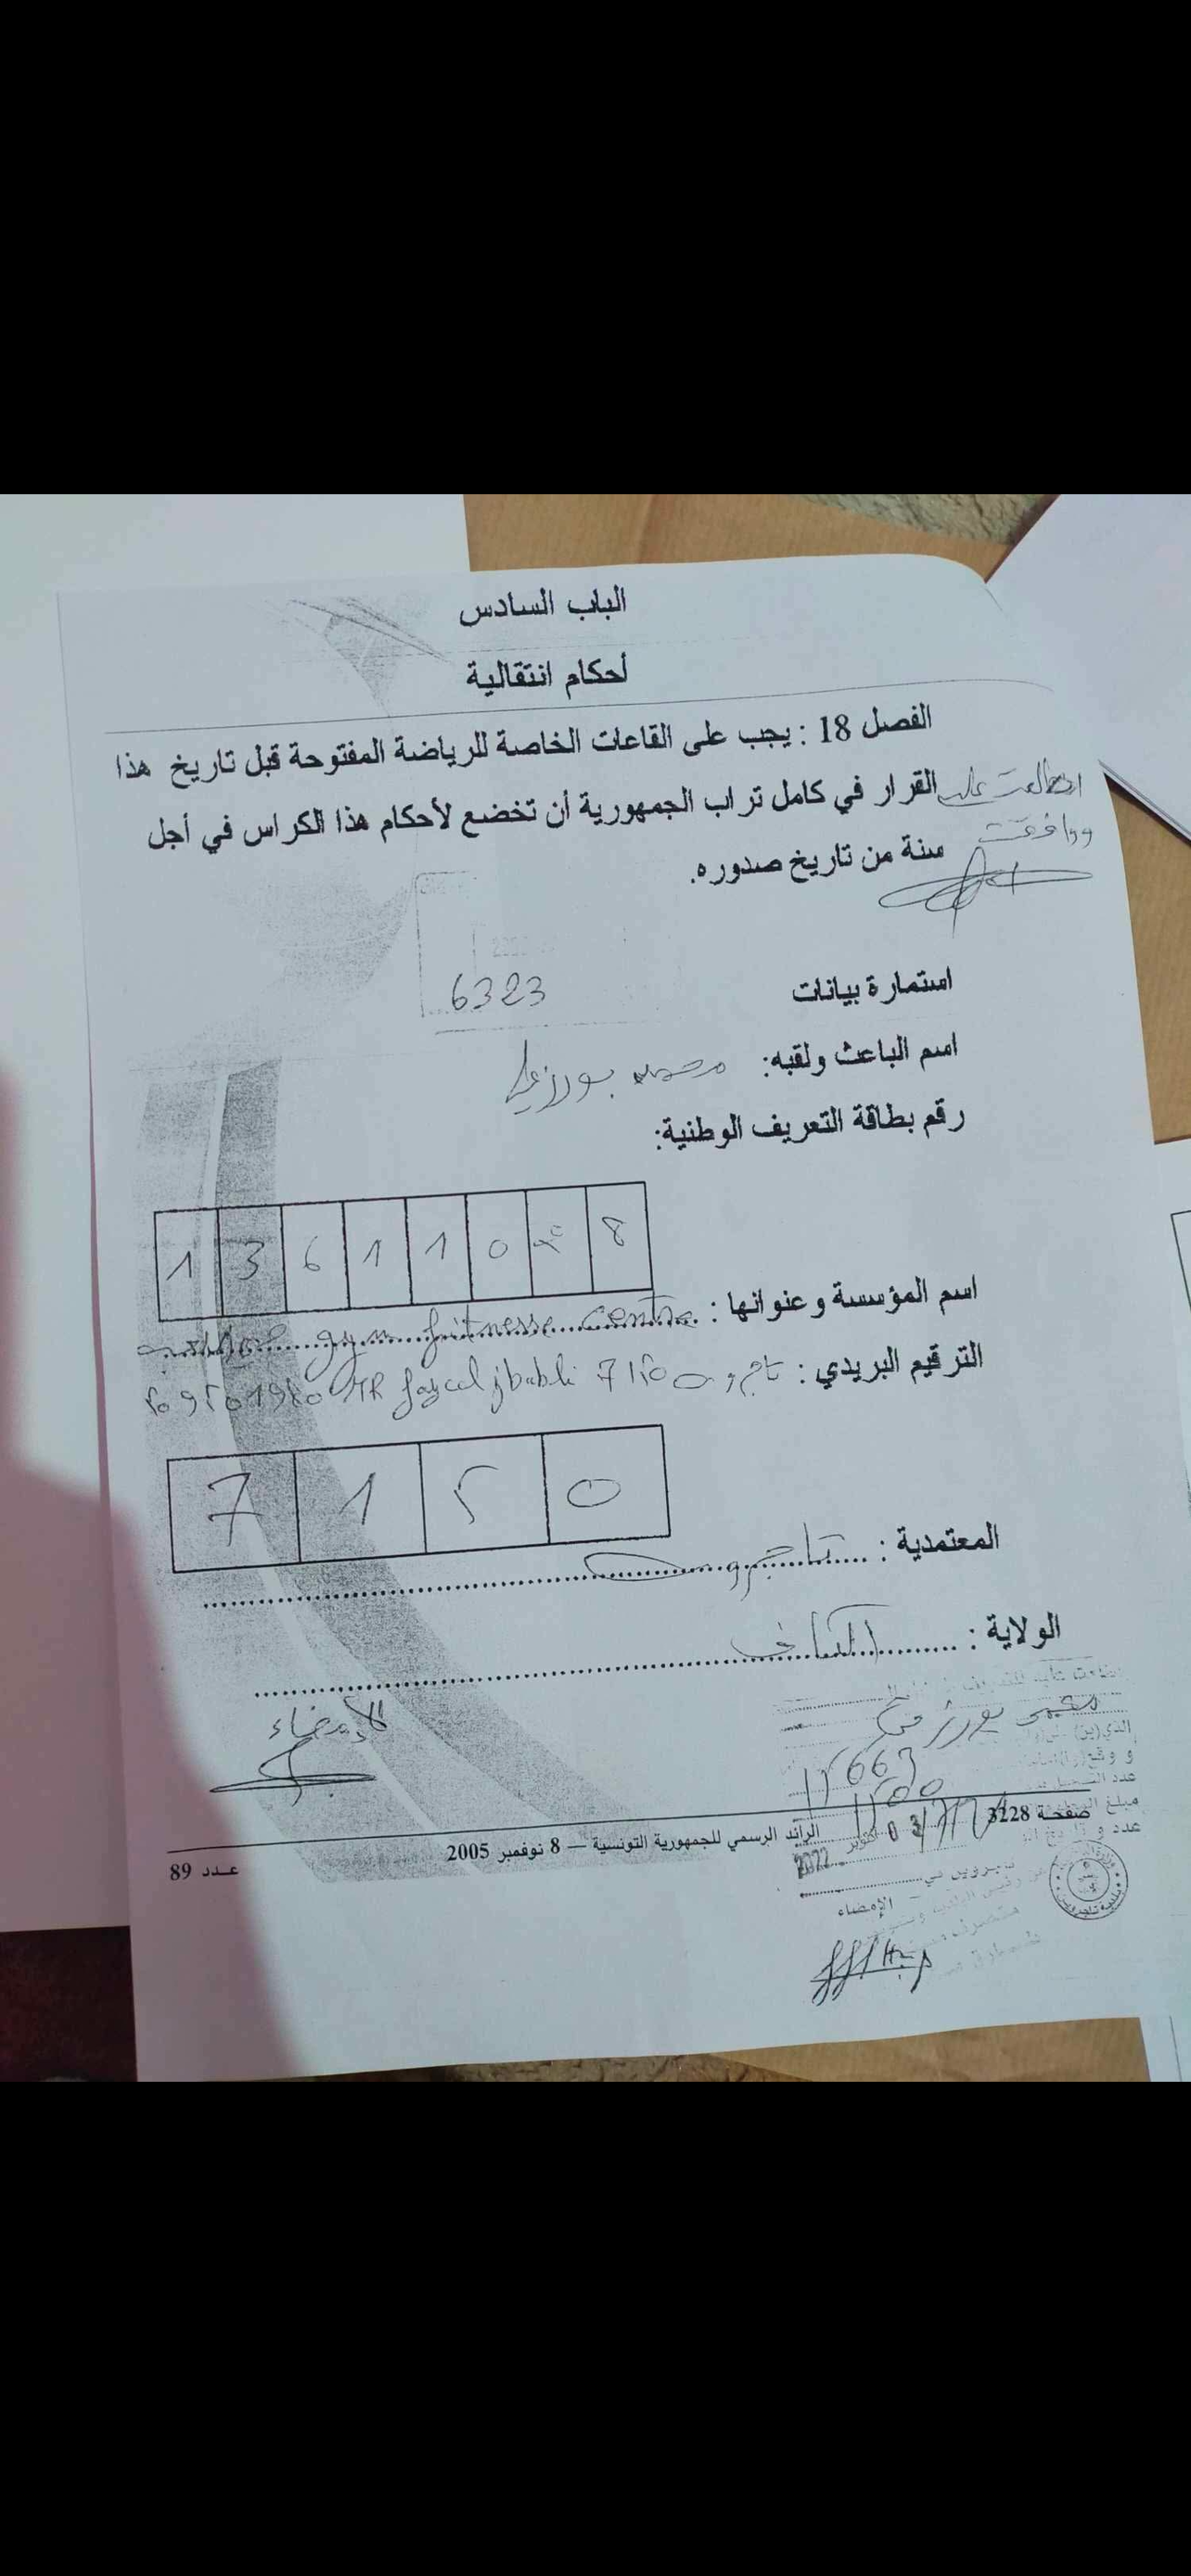 الباب السادس
أحكام انتقالية
الفصل 18 : يجب على القاعات الخاصة للرياضة المفتوحة قبل تاريخ هذا
القرار في كامل تراب الجمهورية أن تخضع لأحكام هذا الكراس في أجل
سنة من تاريخ صدوره.
اطلعت عليه
ووافقت
6323
استمارة بيانات
اسم الباعث ولقبه: محمد
رقم بطاقة التعريف الوطنية:
1 3 6 1 1 0 8
اسم المؤسسة وعنوانها : gym fitnesse centre
الترقيم البريدي : تاجروين 7150 faycel jbabli
7 1 5 0
المعتمدية : تاجروين
الولاية : الكاف
الإمضاء
صفحة 3228
الرائد الرسمي للجمهورية التونسية — 8 نوفمبر 2005
عدد 89
03 أكتوبر 2022
الإمضاء